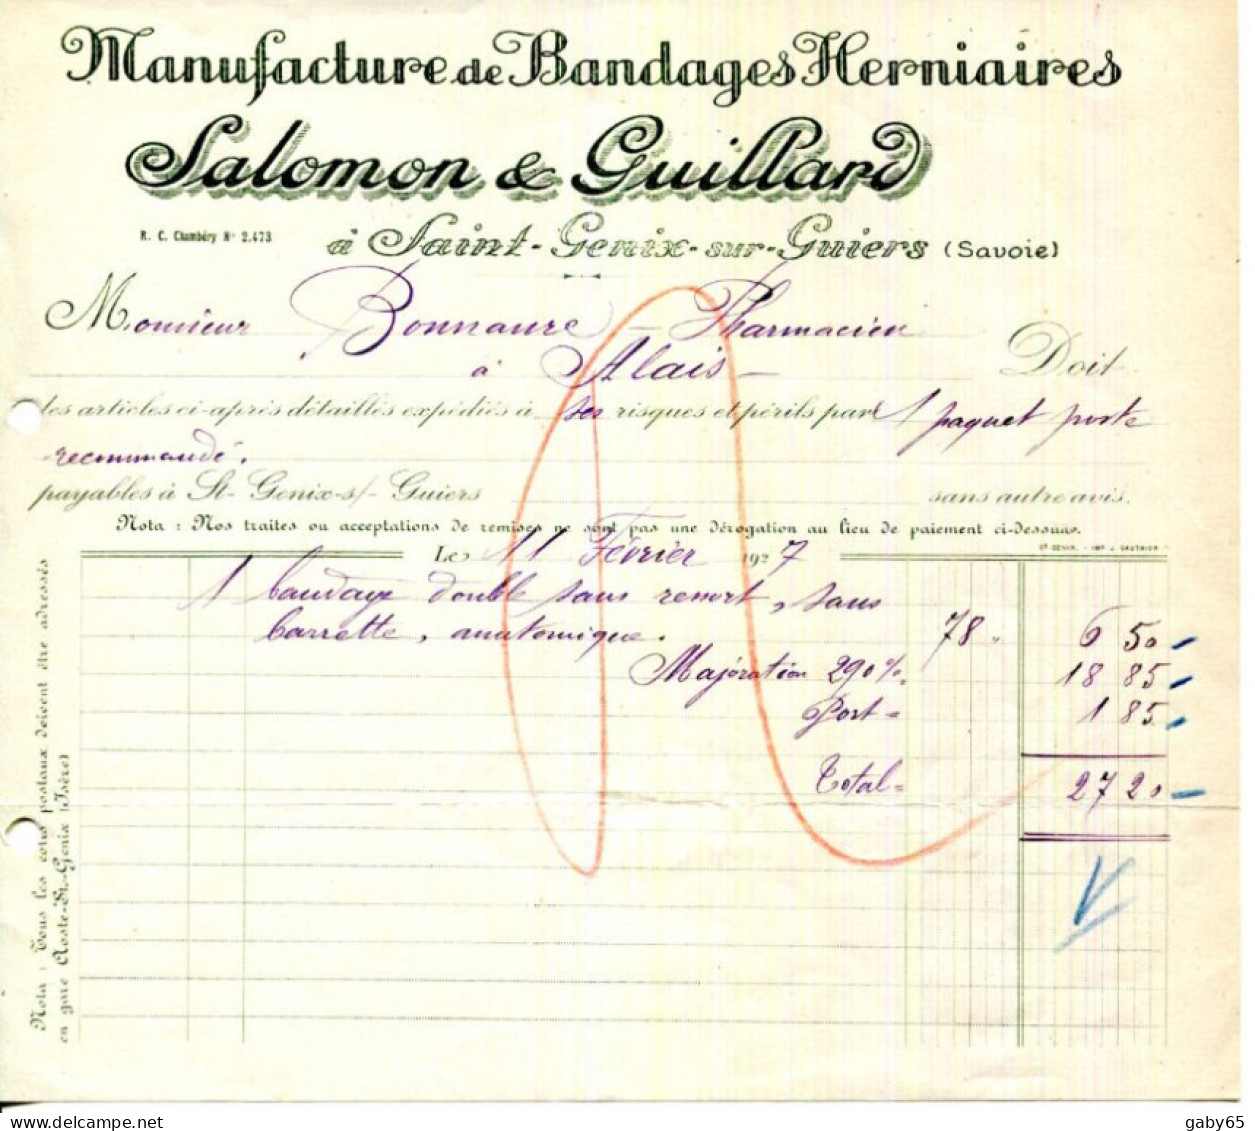 Manufacture de Bandages Herniaires
Salomon & Guillard
R. C. Chambéry N° 2.473
à Saint-Genix-sur-Guiers (Savoie)
Monsieur Bonnaure - Pharmacien
à Alais - Doit
les articles ci-après détaillés expédiés à ses risques et périls par 1 paquet poste
recommandé.
payables à St-Genix-s/-Guiers sans autre avis.
Nota : Nos traites ou acceptations de remises ne sont pas une dérogation au lieu de paiement ci-dessus.
ST-GENIX. - IMP. J. GAUTHIER
Le 11 Février 1927
1 bandage double sans ressort, sans
barrette, anatomique. 78 " 6 50
Majoration 290%. 18 85
Port = 1 85
Total = 27 20
Nota : Tous les colis postaux doivent être adressés
en gare Aoste-St-Genix (Isère)
www.delcampe.net
gaby65